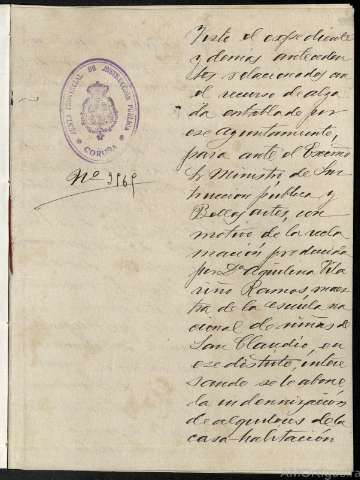 JUNTA PROVINCIAL DE INSTRUCCIÓN PÚBLICA
CORUÑA
Nº 3969
Visto el expediente
y demas anteceden
tes relacionados con
el recurso de alza
da entablado por
ese ayuntamiento,
para ante el Excmo
Sr Ministro de Ins
trucción pública y
Bellas artes, con
motivo de la recla
mación producida
por Dª Aquilina Vila
riño Ramos, maes
tra de la escuela na
cional de niñas de
San Claudio, en
ese distrito, intere
sando se le abone
la indemnización
de alquileres de la
casa-habitación